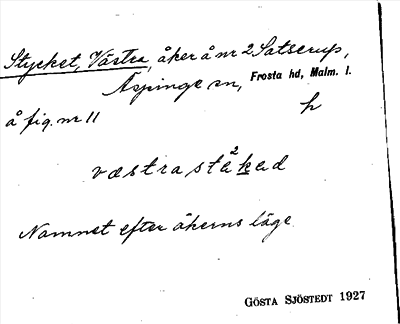 Stycket, Västra, åker å nr 2 Satserup,
Äspinge sn, Frosta hd, Malm. l.
å fig. nr 11 h
Namnet efter åkerns läge
GÖSTA SJÖSTEDT 1927